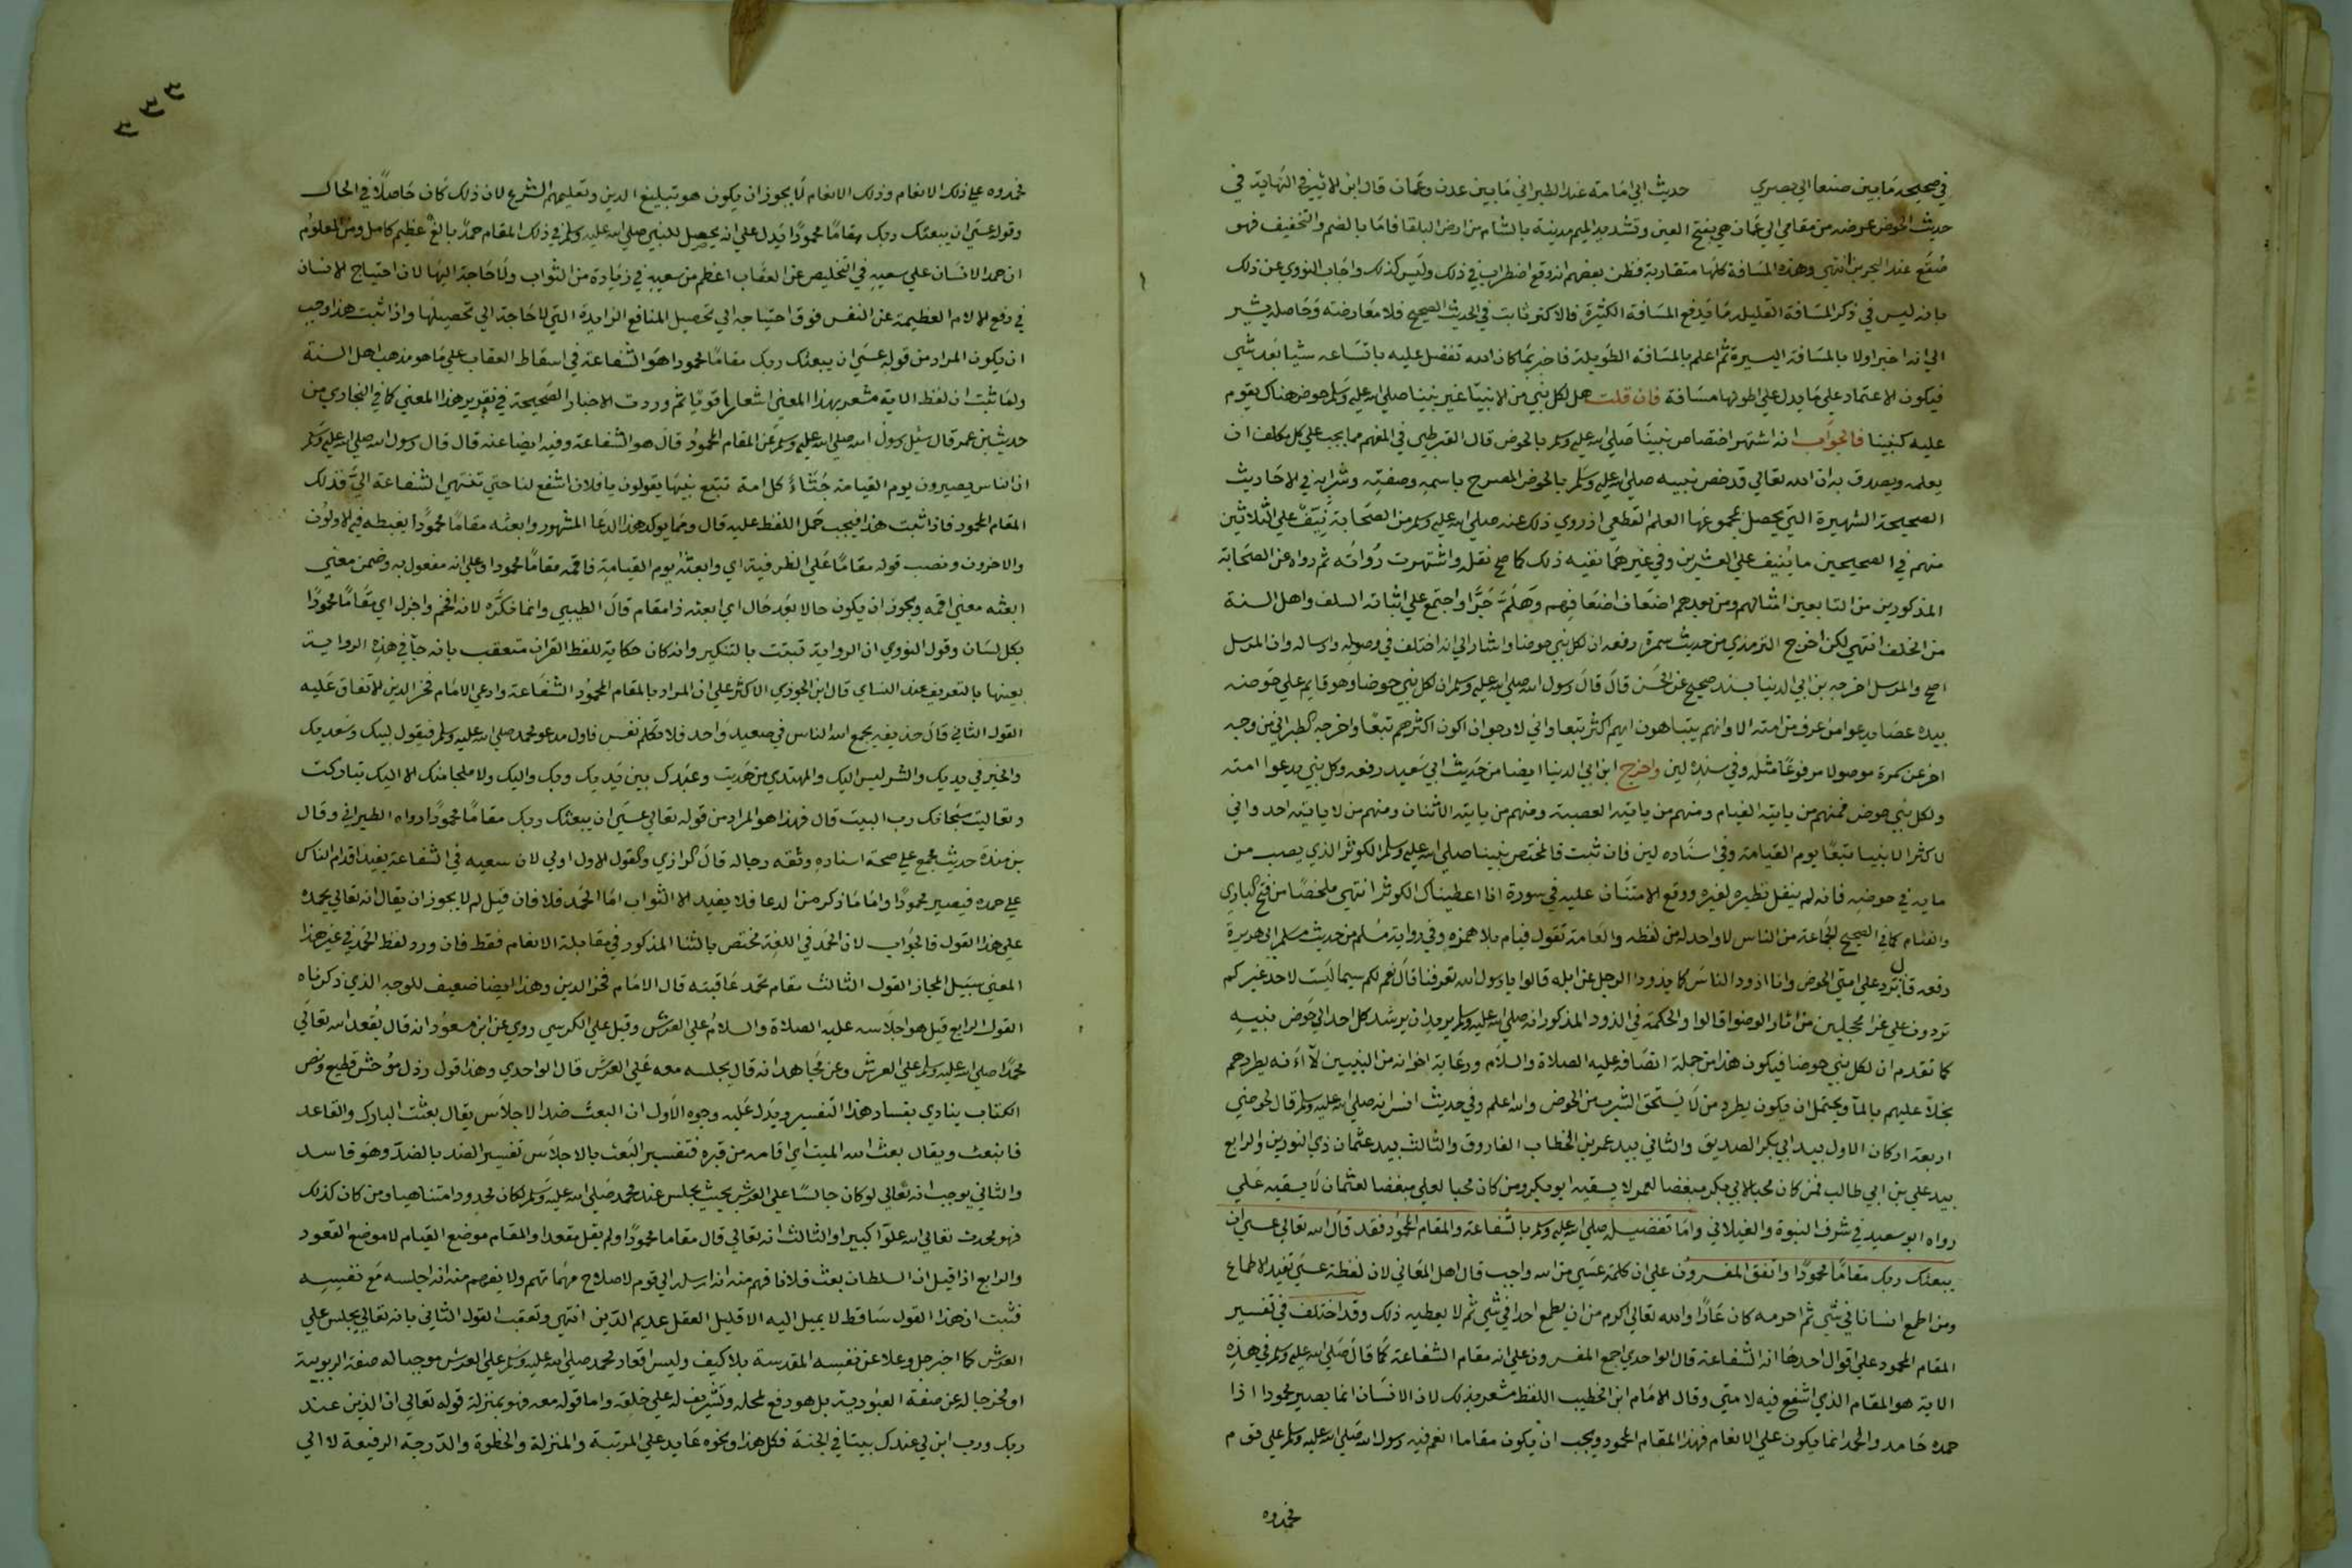 في صحيحه ما بين صنعا الي بصري حديث ابي امامة عند الطبراني ما بين عدن وعمان قال ابن الاثير في النهاية في
حديث الحوض عرضه من مقامي الي عمان هي بفتح العين وتشديد الميم مدينة بالشام من ارض البلقا فاما بالضم والتخفيف فهو
صُقع عند البحرين انتهي وهذه المسافة كلها متقاربة فظن بعضهم انه وقع اضطراب في ذلك وليس كذلك واجاب النووي عن ذلك
بانه ليس في ذكر المسافة القليلة ما يدفع المسافة الكثيرة فالاكثر ثابت في الحديث الصحيح فلا معارضة وحاصله يشير
الي انه اخبر اولا بالمسافة اليسيرة ثم اعلم بالمسافة الطويلة فاخبر بما كان الله تفضل عليه باتساعه شيا بعد شي
فيكون الاعتماد علي ما يدل علي اطولها مسافة فان قلت هل لكل نبي من الانبيا غير نبينا صلي الله عليه وسلم حوض هناك يقوم
عليه كنبينا فالجواب انه اشتهر اختصاص نبينا صلي الله عليه وسلم بالحوض قال القرطبي في المفهم مما يجب علي كل مكلف ان
يعلمه ويصدق به ان الله تعالي قد خص نبيه صلي الله عليه وسلم بالحوض المصرح باسمه وصفته وشرابه في الاحاديث
الصحيحة الشهيرة التي يحصل بمجموعها العلم القطعي اذ روي ذلك عنه صلي الله عليه وسلم من الصحابة نَيّف علي الثلاثين
منهم في الصحيحين ما ينيف علي العشرين وفي غيرهما بقيه ذلك كما صح نقله واشتهرت رُواته ثم رواه عن الصحابة
المذكورين من التابعين امثالهم ومن بعدهم اضعاف اضعافهم وهلم جرّا واجتمع علي اثباته السلف واهل السنة
من الخلف انتهي لكن اخرج الترمذي من حديث سمرة رفعه ان لكل نبي حوضا واشار الي انه اختلف في وصله وارساله وان المرسل
اصح والمرسل اخرجه بن ابي الدنيا بسند صحيح عن الحسن قال قال رسول الله صلي الله عليه وسلم ان لكل نبي حوضا وهو قايم علي حوضه
بيده عصا يدعوا من عرف من امته الا وانهم يتباهون ايهم اكثر تبعا واني لارجو ان اكون اكثرهم تبعًا واخرجه الطبراني من وجه
اخر عن سمرة موصولا مرفوعًا مثله وفي سنده لين واخرج ابن ابي الدنيا ايضا من حديث ابي سعيد رفعه وكل نبي يدعوا امته
ولكل نبي حوض فمنهم من ياتيه الفيام ومنهم من ياتيه العصبة ومنهم من ياتيه الاثنان ومنهم من لا ياتيه احد واني
لاكثر الانبيا تبعًا يوم القيامة وفي اسناده لين فان ثبت فالمختص بنبينا صلي الله عليه وسلم الكوثر الذي يصب من
مايه في حوضه فانه لم ينقل نظيره لغيره ووقع الامتنان عليه في سورة انا اعطيناك الكوثر انتهي ملخصًا من فتح الباري
والفئام كما في الصحيح الجماعة من الناس لا واحد له من لفظه والعامة تقول فيام بلا همزه وفي رواية مسلم من حديث مسلم ابي هريرة
رفعه قال ترد علي امتي الحوض وانا اذود الناس كما يذود الرجل عن ابله قالوا يا رسول الله تعرفنا قال نعم لكم سيما ليست لاحد غيركم
تردون علي غرا محجلين من اثار الوضوا قالوا والحكمة في الذود المذكور انه صلي الله عليه وسلم يريد ان يرشد كل احد الي حوض نبيه
كما تقدم ان لكل نبي حوضا فيكون هذا من جملة انصافه عليه الصلاة والسلام ورعاية اخوانه من النبيين لا انه يطردهم
بخلاً عليهم بالمآ ويحتمل ان يكون يطرد من لا يستحق الشرب من الحوض والله اعلم وفي حديث انس انه صلي الله عليه وسلم قال لحوضي
اربعة اركان الاول بيد ابي بكر الصديق والثاني بيد عمر بن الخطاب الفاروق والثالث بيد عثمان ذي النورين والرابع
بيد علي بن ابي طالب فمن كان محبا لابي بكر مبغضا لعمر لا يسقيه ابو بكر ومن كان محبا لعلي مبغضا لعثمان لا يسقيه علي
رواه ابو سعيد في شرف النبوة والغيلاني واما تفضيله صلي الله عليه وسلم بالشفاعة والمقام المحمود فقد قال الله تعالي عسي ان
يبعثك ربك مقامًا محمودًا واتفق المفسرون علي ان كلمة عسي من الله واجب قال اهل المعاني لان لفظة عسي تفيد الاطماع
ومن اطمع انسانا في شي ثم احرمه كان عارًا والله تعالي اكرم من ان يطمع احدا في شي ثم لا يعطيه ذلك وقد اختلف في تفسير
المقام المحمود علي اقوال احدها انه الشفاعة قال الواحدي اجمع المفسرون علي انه مقام الشفاعة كما قال صلي الله عليه وسلم في هذه
الاية هو المقام الذي اشفع فيه لامتي وقال الامام ابن الخطيب اللفظ مشعر بذلك لان الانسان انما يصير محمودا اذا
حمده حامد والحمد انما يكون علي الانعام فهذا المقام المحمود ويجب ان يكون مقاما انعم فيه رسول الله صلي الله عليه وسلم علي قوم
فحمدوه
٣٣٣
فحمدوه علي ذلك الانعام وذلك الانعام لا يجوز ان يكون هو تبليغ الدين وتعليمهم الشرع لان ذلك كان حاصلاً في الحال
وقوله عسي ان يبعثك ربك مقامًا محمودًا يدل علي انه يحصل للنبي صلي الله عليه وسلم في ذلك المقام حمدٌ بالغ عظيم كامل ومن المعلوم
ان حمد الانسان علي سعيه في التخليص عن العقاب اعظم من سعيه في زيادة من الثواب ولا حاجة اليها لان احتياج الانسان
في دفع الالام العظيمة عن النفس فوق احتياجه الي تحصيل المنافع الزايدة التي لا حاجة الي تحصيلها واذا ثبت هذا وجب
ان يكون المراد من قوله عسي ان يبعثك ربك مقامًا محمودا هو الشفاعة في اسقاط العقاب علي ما هو مذهب اهل السنة
ولما ثبت ان لفظ الاية مشعر بهذا المعني اشعارا قويًا ثم وردت الاخبار الصحيحة في تقرير هذا المعني كما في البخاري من
حديث بن عمر قال سئل رسول الله صلي الله عليه وسلم عن المقام المحمود قال هو الشفاعة وفيه ايضا عنه قال قال رسول الله صلي الله عليه وسلم
ان الناس يصيرون يوم القيامة جُثاءً كل امة تتبع نبيها يقولون يا فلان اشفع لنا حتي تنتهي الشفاعة الي فذلك
المقام المحمود فاذا ثبت هذا فيجب حمل اللفظ عليه قال ومما يوكد هذا الدعا المشهور وابعثه مقامًا محمودًا يغبطه فيه الاولون
والاخرون ونصب قوله مقامًا علي الظرفية اي وابعثه يوم القيامة فاقمه مقامًا محمودا وعلي انه مفعول به وضمن معني
ابعثه معني اقمه ويجوز ان يكون حالا بعد حال اي ابعثه ذا مقام قال الطيبي وانما نكّره لانه افخم واجزل اي مقامًا محمودًا
بكل لسان وقول النووي ان الرواية ثبتت بالتنكير وانه كان حكاية للفظ القران متعقب بانه جآ في هذه الرواية
بعينها بالتعريف عند النساي قال ابن الجوزي الاكثر علي ان المراد بالمقام المحمود الشفاعة وادعي الامام فخر الدين الاتفاق عليه
القول الثاني قال حذيفه يجمع الله الناس في صعيد واحد فلا تكلم نفس فاول مدعو محمد صلي الله عليه وسلم فيقول لبيك وسعديك
والخير في يديك والشر ليس اليك والمهتدي من هديت وعبدك بين يديك وبك واليك ولا ملجا منك الا اليك تباركت
وتعاليت سبحانك رب البيت قال فهذا هو المراد من قوله تعالي عسي ان يبعثك ربك مقامًا محمودًا رواه الطبراني وقال
بن مندة حديث مجمع علي صحة اسناده وثقه رجاله قال الرازي والقول الاول اولي لان سعيه في الشفاعة يفيد اقدام الناس
علي حمده فيصير محمودًا واما ما ذكر من الدعا فلا يفيد الا الثواب اما الحمد فلا فان قيل لم لا يجوز ان يقال انه تعالي يحمده
علي هذا القول فالجواب لان الحمد في اللغة مختص بالثنا المذكور في مقابلة الانعام فقط فان ورد لفظ الحمد في غير هذا
المعني سبيل المجاز القول الثالث مقام تحمد عاقبته قال الامام فخر الدين وهذا ايضا ضعيف للوجه الذي ذكرناه
القول الرابع قيل هو اجلاسه عليه الصلاة والسلام علي العرش وقيل علي الكرسي روي عن ابن مسعود انه قال يقعد الله تعالي
محمدًا صلي الله عليه وسلم علي العرش وعن مجاهد انه قال يجلسه معه علي العرش قال الواحدي وهذا قول رذل موحش قطيع ونص
الكتاب ينادي بفساد هذا التفسير ويدل عليه وجوه الاول ان البعث ضد الاجلاس يقال بعثت البارك والقاعد
فانبعث ويقال بعث الله الميت اي اقامه من قبره فتفسير البعث بالاجلاس تفسير الضد بالضد وهو فاسد
والثاني يوجب انه تعالي لو كان جالسًا علي العرش بحيث يجلس عنده محمد صلي الله عليه وسلم لكان محدودا متناهيا ومن كان كذلك
فهو محدث تعالي الله علوّا كبيرا والثالث انه تعالي قال مقاما محمودًا ولم يقل مقعدا والمقام موضع القيام لا موضع القعود
والرابع اذا قيل ان السلطان بعث فلانا فهم منه انه ارسله الي قوم لاصلاح مهماتهم ولا يفهم منه انه اجلسه مع نفسه
فثبت ان هذا القول ساقط لا يميل اليه الا قليل العقل عديم الدّين انتهي وتعقب القول الثاني بانه تعالي يجلس علي
العرش كما اخبر جل وعلا عن نفسه المقدسة بلا كيف وليس اقعاد محمد صلي الله عليه وسلم علي العرش موجبا له صفة الربوبية
او مخرجا له عن صفة العبودية بل هو رفع لمحله وتشريف له علي خلقه واما قوله معه فهو بمنزلة قوله تعالي ان الذين عند
ربك ورب ابن لي عندك بيتا في الجنة فكل هذا ونحوه عايد علي المرتبة والمنزلة والحظوة والدّرجة الرفيعة لا الي